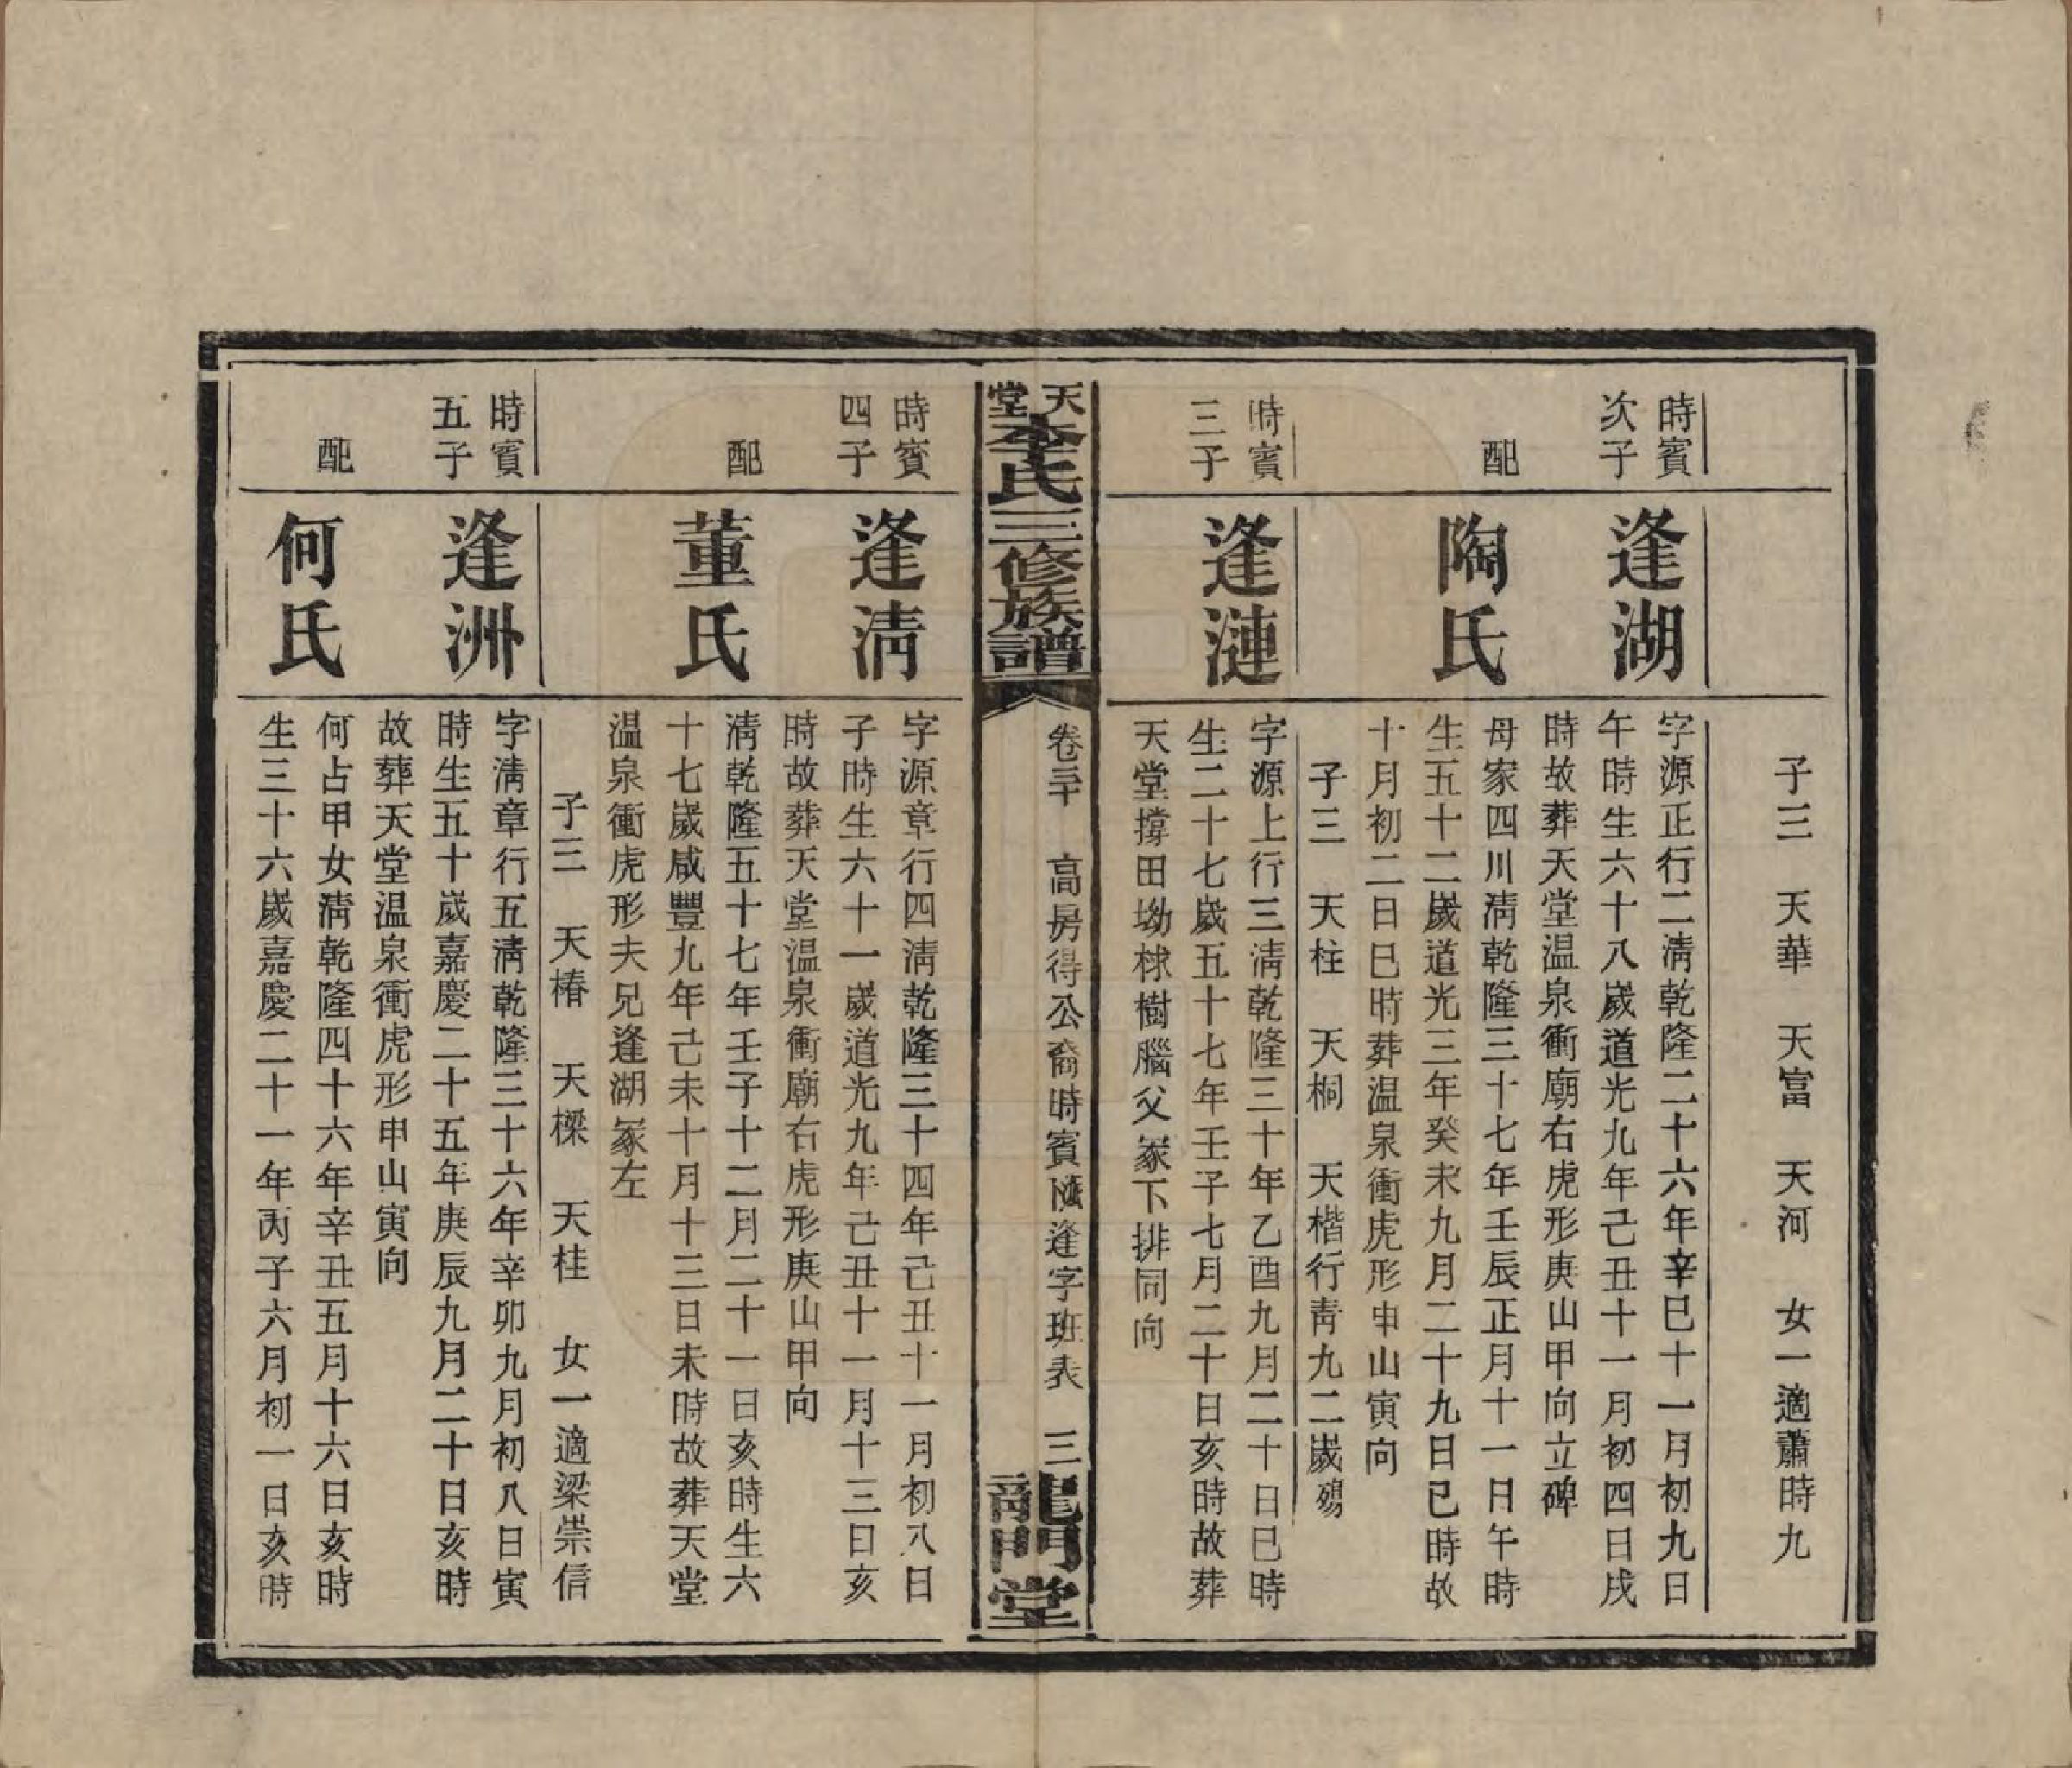 子三　天華　天富　天河　女一適蕭時九
時賓
次子
逢湖
字源正行二淸乾隆二十六年辛巳十一月初九日
午時生六十八歲道光九年己丑十一月初四日戌
時故葬天堂温泉衝廟右虎形庚山甲向立碑
配
陶氏
母家四川淸乾隆三十七年壬辰正月十一日午時
生五十二歲道光三年癸未九月二十九日已時故
十月初二日巳時葬温泉衝虎形申山寅向
子三　天柱　天桐　天楷行靑九二歲殤
時賓
三子
逢漣
字源上行三淸乾隆三十年乙酉九月二十日巳時
生二十七歲五十七年壬子七月二十日亥時故葬
天堂撐田坳梂樹腦父冢下排同向
天堂李氏三修族譜
卷三十　高房得公裔時賓逢字班表　三
龍門堂
時賓
四子
逢淸
字源章行四淸乾隆三十四年己丑十一月初八日
子時生六十一歲道光九年己丑十一月十三日亥
時故葬天堂温泉衝廟右虎形庚山甲向
配
董氏
淸乾隆五十七年壬子十二月二十一日亥時生六
十七歲咸豐九年己未十月十三日未時故葬天堂
温泉衝虎形夫兄逢湖冢左
子三　天椿　天樑　天桂　女一適梁崇信
時賓
五子
逢洲
字淸章行五淸乾隆三十六年辛卯九月初八日寅
時生五十歲嘉慶二十五年庚辰九月二十日亥時
故葬天堂温泉衝虎形申山寅向
配
何氏
何占甲女淸乾隆四十六年辛丑五月十六日亥時
生三十六歲嘉慶二十一年丙子六月初一日亥時